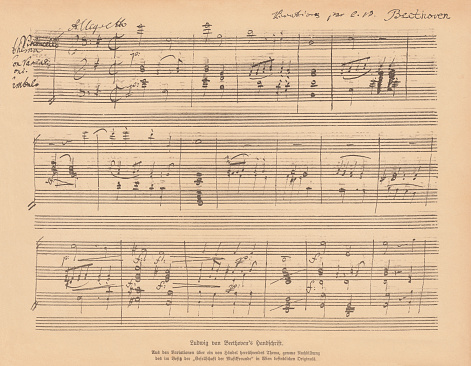 Allegretto
Variations par L. v. Beethoven
Violoncello
Thema
cembalo
Ludwig van Beethoven's Handschrift.
Aus den Variationen über ein von Händel herrührendes Thema, genaue Nachbildung
des im Besitz der „Gesellschaft der Musikfreunde" in Wien befindlichen Originals.